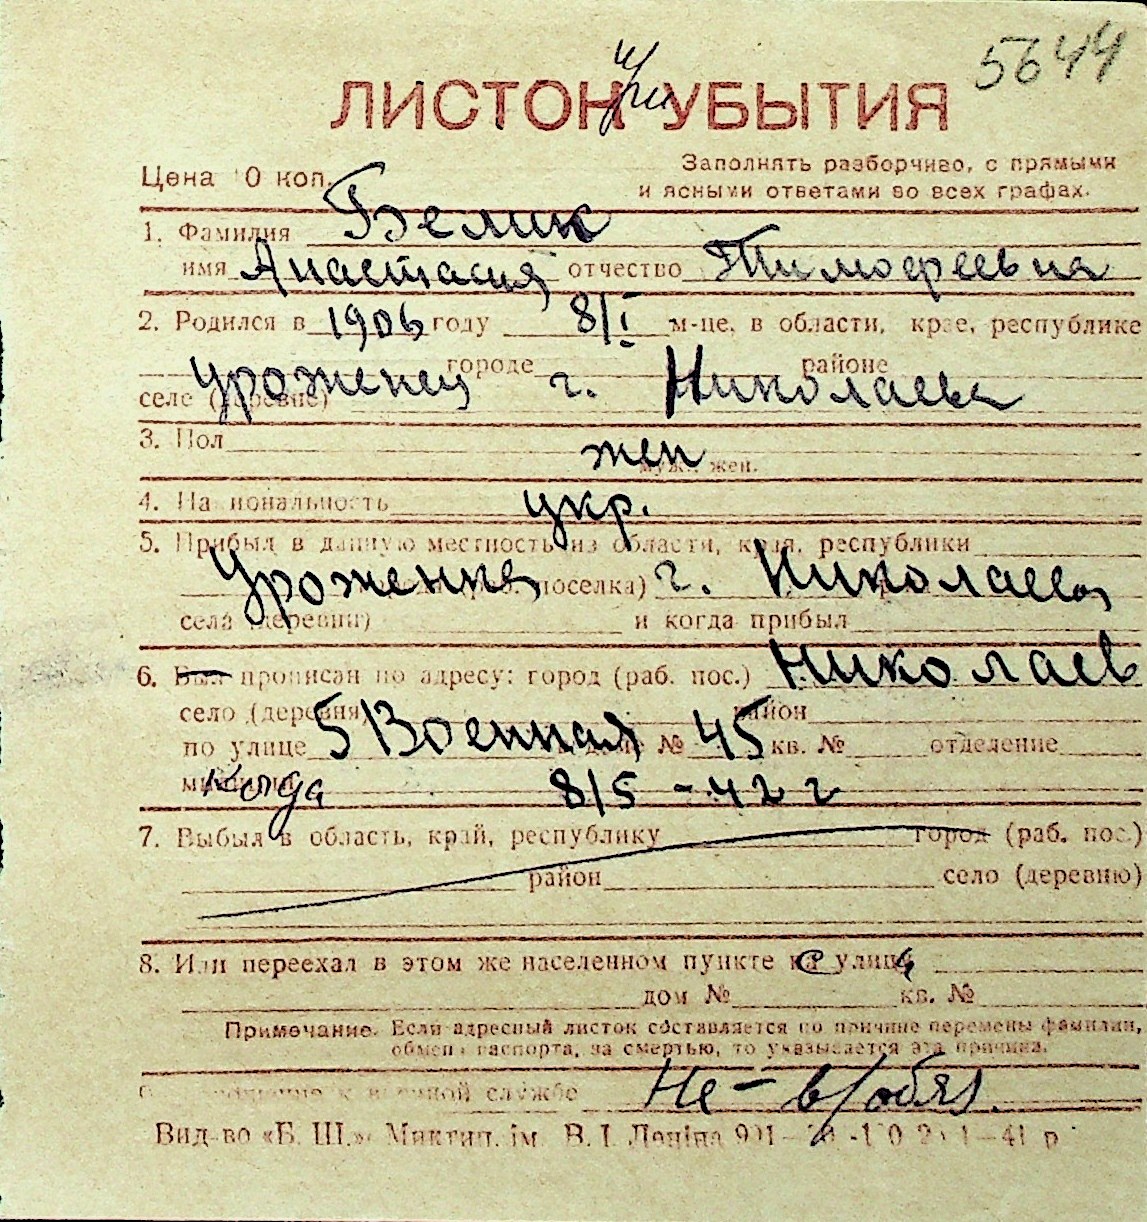 5644
ЛИСТОК при УБЫТИЯ
Цена 10 коп.
Заполнять разборчиво, с прямыми
и ясными ответами во всех графах.
1. Фамилия Белик
имя Анастасия отчество Тимофеевна
2. Родился в 1906 году 8/I м-це, в области, крае, республике
городе районе
уроженец г. Николаева
селе (деревне)
3. Пол жен
муж., жен.
4. Национальность укр.
5. Прибыл в данную местность из области, края, республики
Уроженка поселка) г. Николаева
села (деревни) и когда прибыл
6. Был прописан по адресу: город (раб. пос.) Николаев
село (деревня) район
по улице 5 Военная доме № 45 кв. № отделение
милиции Когда 8/5 - 42 г
7. Выбыл в область, край, республику город (раб. пос.)
район село (деревню)
8. Или переехал в этом же населенном пункте с улицы
дом № кв. №
Примечание. Если адресный листок составляется по причине перемены фамилии,
обмена паспорта, за смертью, то указывается эта причина.
к военной службе Не - в/обяз.
Вид-во «Б. Ш.» Миктип. ім. В. І. Леніна